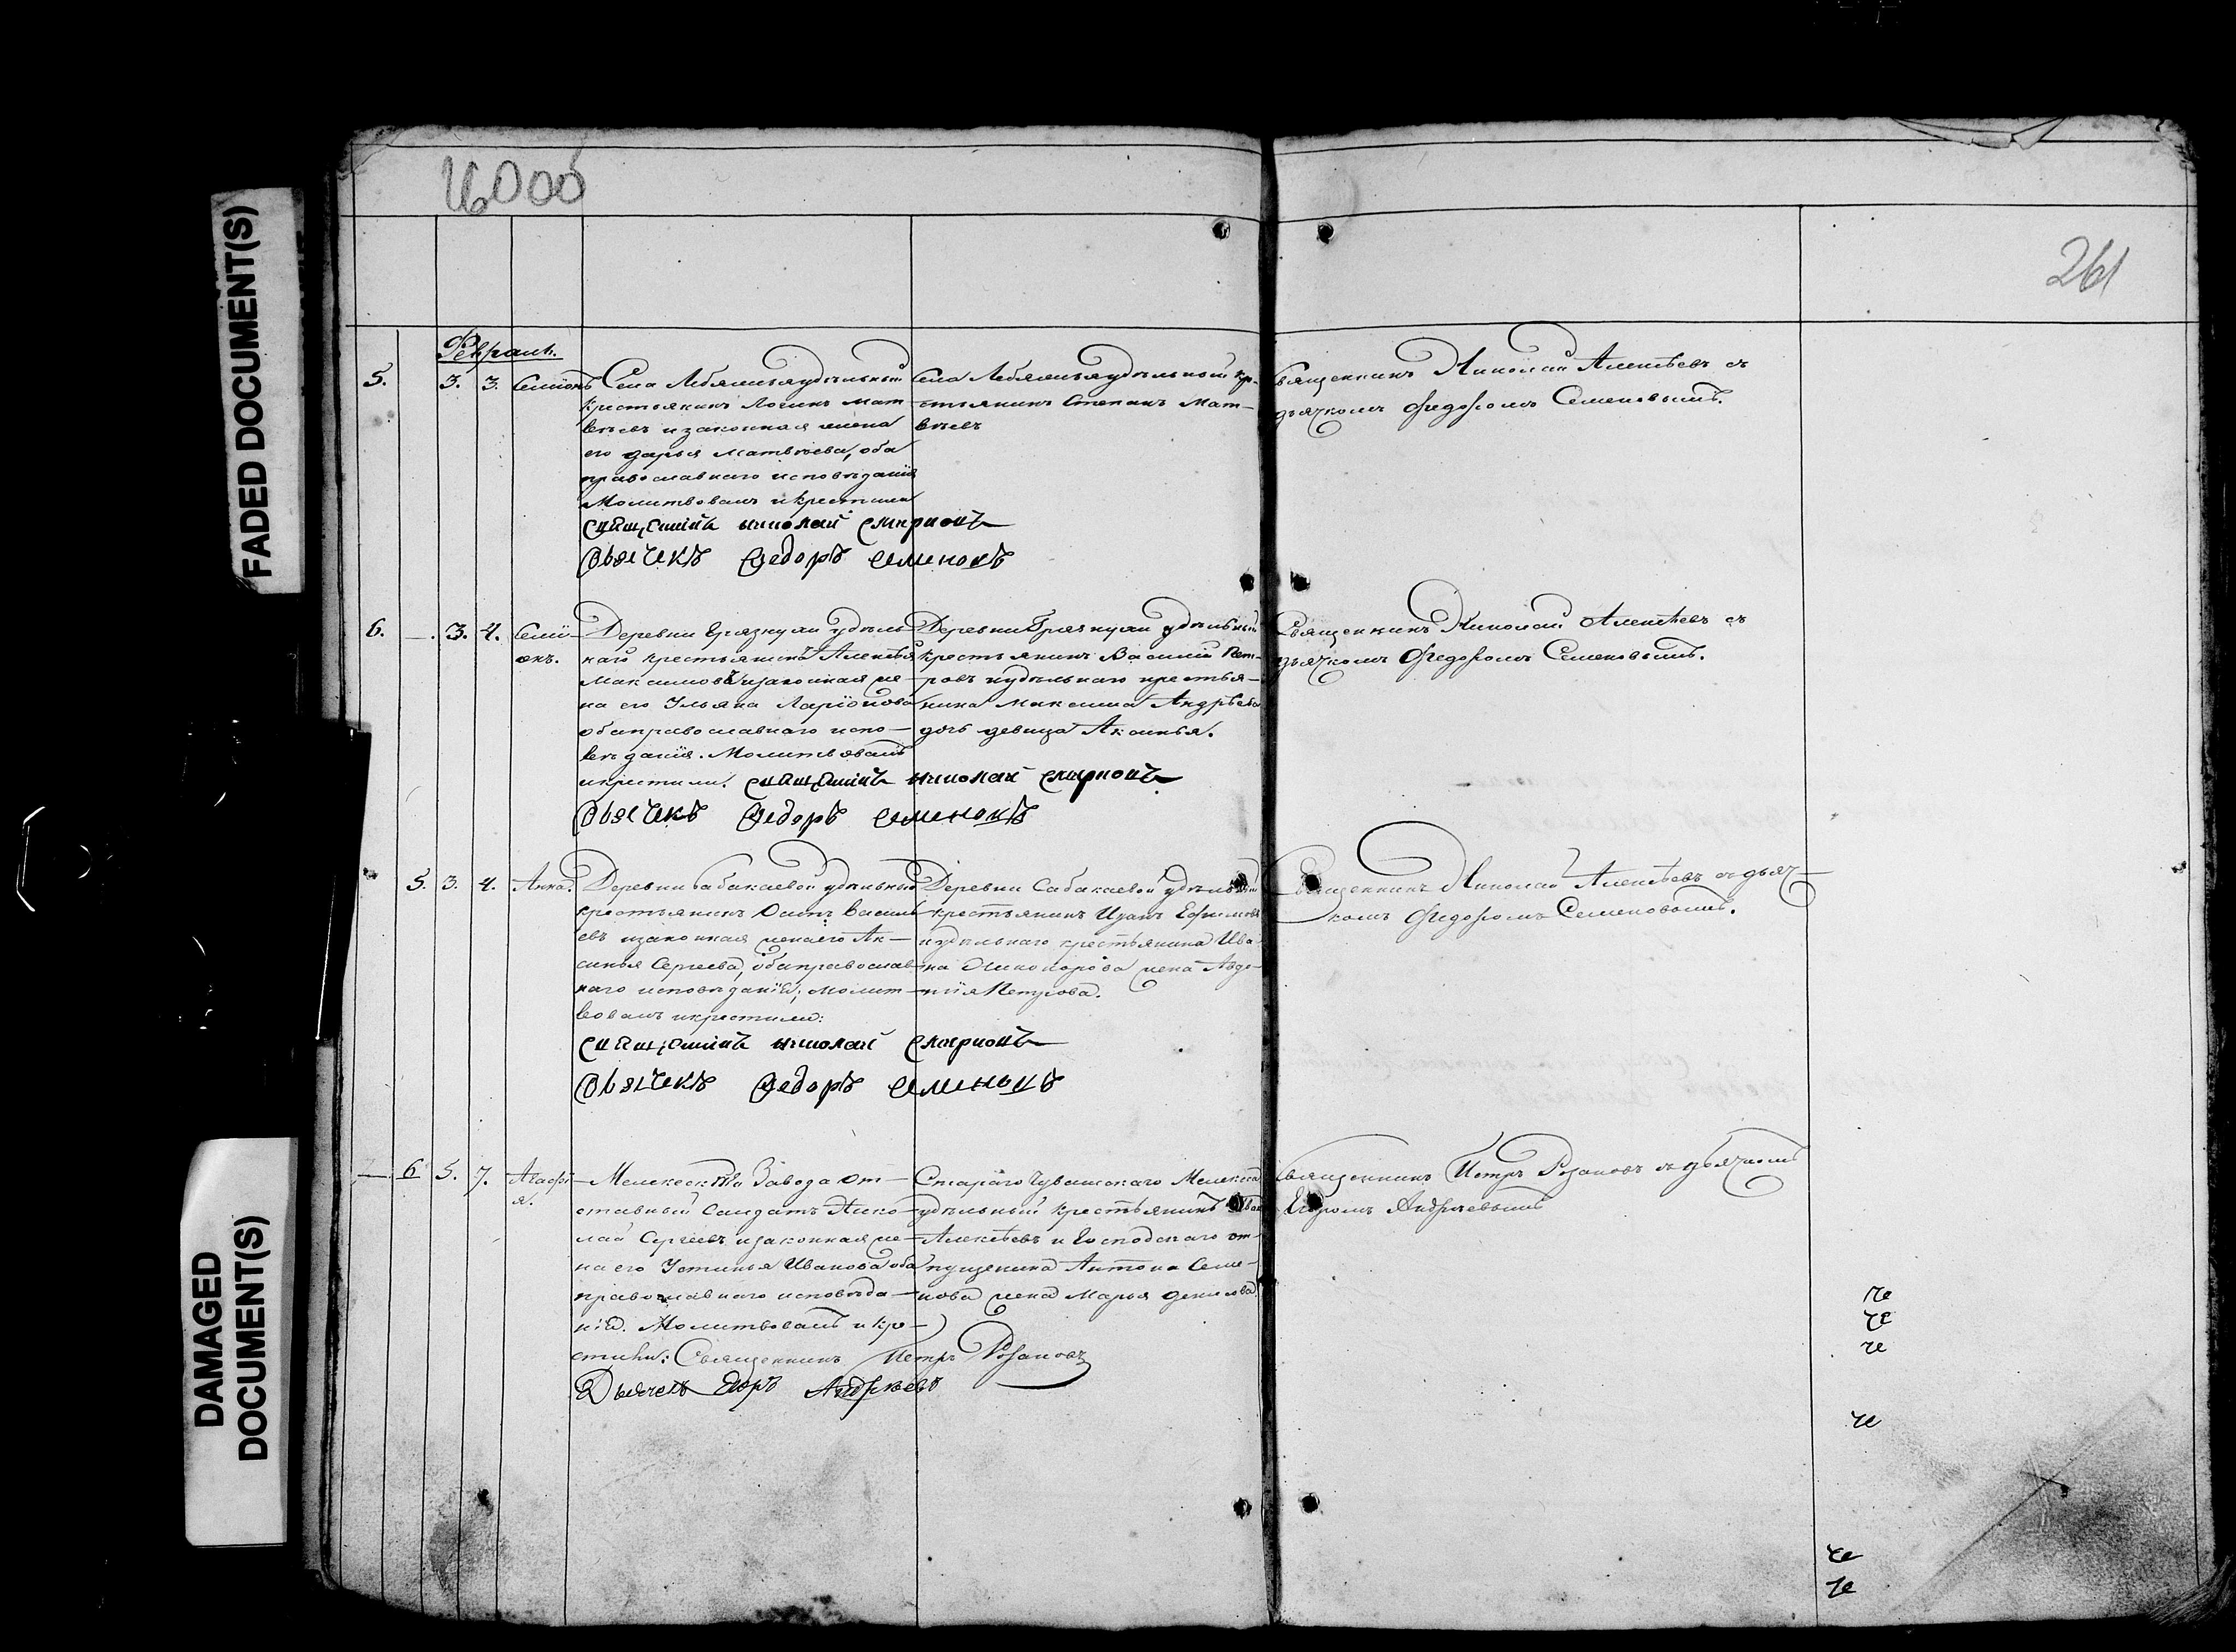 FADED DOCUMENT(S)
DAMAGED
DOCUMENT(S)
261
Февраль.
5. 3. 3. Семіонъ
Села Лебяжья удѣльный
крестьянинъ Логинъ Мат-
вѣевъ и законная жена
его Дарья Матвѣева, оба
православнаго исповѣданія
Молитвовалъ и крестили
священникъ николай смирновъ
Дьячекъ Федоръ Семеновъ
Села Лебяжья удѣльной кр-
стьянинъ Степанъ Мат-
вѣевъ
Священникъ Николай Алексѣевъ съ
дьячкомъ Федоромъ Семеновымъ.
6. —. 3. 4. Семі-
онъ.
Деревни Грязнухи удѣль-
наго крестьянинъ Алексѣй
Максимовъ и законная же-
на его Ульяна Ларіонова
оба православнаго испо-
вѣданія. Молитвовалъ
и крестили. священникъ николай смирновъ
Дьячекъ Федоръ Семеновъ
Деревни Грязнухи удѣльный
крестьянинъ Василій Пет-
ровъ и удѣльнаго крестья-
нина Максима Андрѣева
дочь девица Аксинья.
Священникъ Николай Алексѣевъ съ
дьячкомъ Федоромъ Семеновымъ.
5. 3. 4. Анна.
Деревни Сабакаевой удѣльный
крестьянинъ Осипъ Василь-
евъ и законная жена его Ак-
синья Сергеева, оба православ-
наго исповѣданія; молит-
вовалъ и крестили:
священникъ николай смирновъ
Дьячекъ Федоръ Семеновъ
Деревни Сабакаевой удѣльный
крестьянинъ Иванъ Ефимовъ
и удѣльнаго крестьянина Ива-
на Никонорова жена Авдо-
тія Петрова.
Священникъ Николай Алексѣевъ съ дьяч-
комъ Федоромъ Семеновымъ.
— 6 5. 7. Агафі-
я.
Мелекескаго Завода от-
ставный Салдатъ Нико-
лай Сергеевъ и законная же-
на его Устинья Иванова оба
православнаго исповѣда-
нія. Молитвовалъ и кре-
стили: Священникъ Петръ Розановъ
Дьячекъ Егоръ Андреевъ
Стараго Чувашскаго Мелекеса
удѣльный крестьянинъ Иван
Алексѣевъ и Господскаго от-
пущенина Антона Семе-
нова жена Марья Денисова.
Священникъ Петръ Розановъ съ дьячкомъ
Егоромъ Андреевымъ